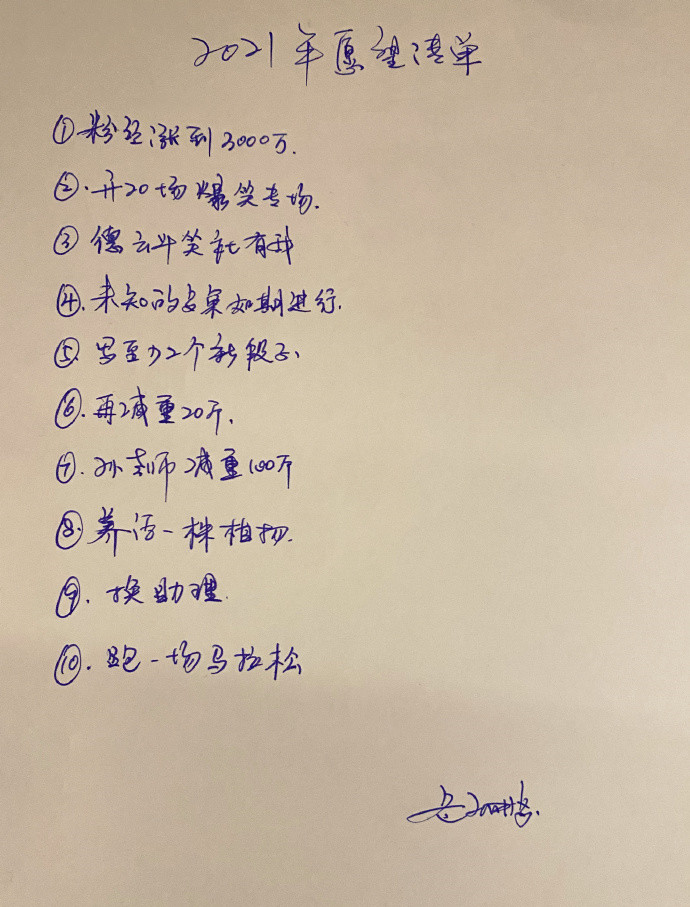 2021年愿望清单
①粉丝涨到3000万.
②.开20场爆笑专场.
③德云斗笑社有我
④.未知的安桌如期进行.
⑤.写至少2个新段子、
⑥.再减重20斤.
⑦.孙老师减重100斤
⑧.养活一株植物.
⑨.换助理.
⑩.跑一场马拉松
岳云鹏.